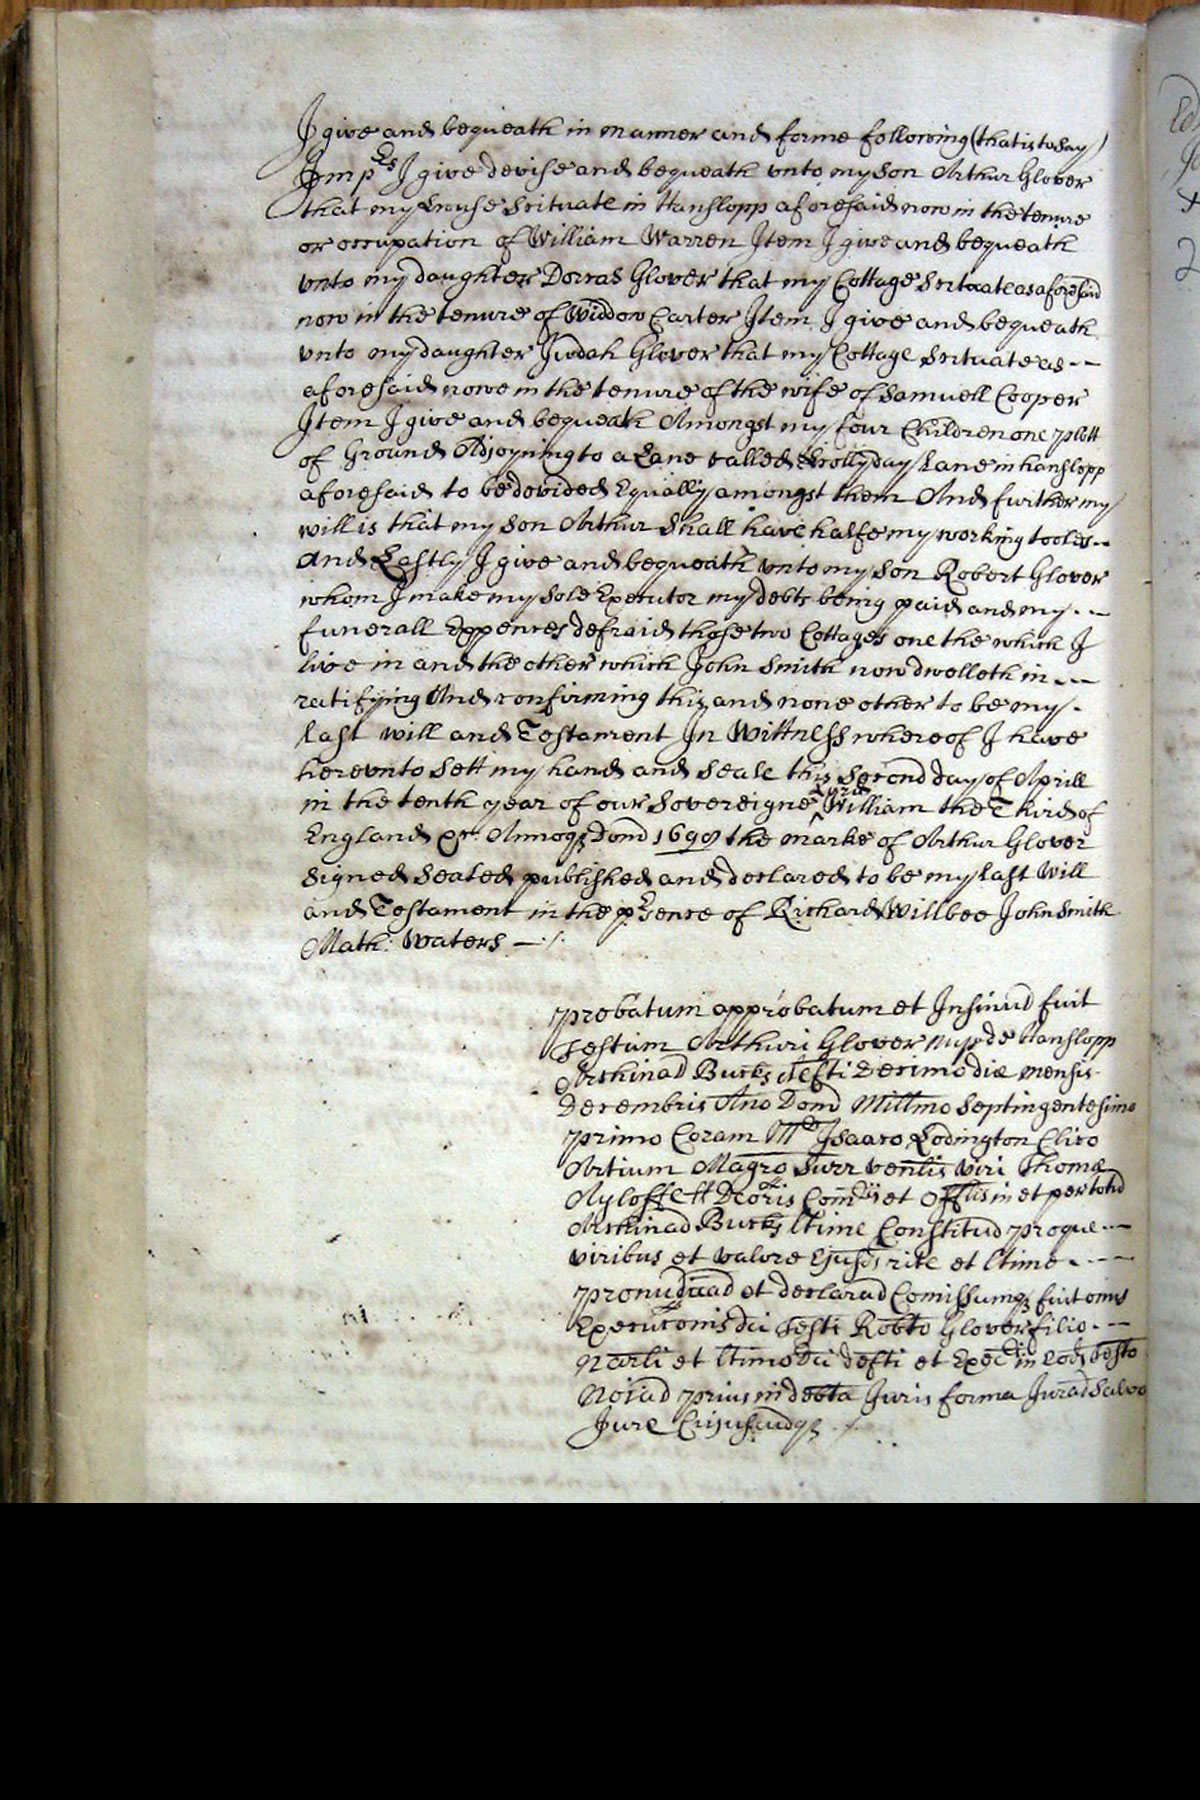 I give and bequeath in manner and forme following (that is to say)
Imprs I give devise and bequeath vnto my son Arthur Glover
that my house scituate in Hanslopp aforesaid now in the tenure
or occupation of William Warren Item I give and bequeath
vnto my daughter Dorcas Glover that my Cottage Scituate as aforesaid
now in the tenure of Widdow Carter Item I give and bequeath
vnto my daughter Judah Glover that my Cottage Scituate as --
aforesaid nowe in the tenure of the wife of Samuell Cooper
Item I give and bequeath Amongst my four Children one plott
of Ground Adjoyning to a Lane called Hollyday Lane in hanslopp
aforesaid to be devided Equally amongst them And further my
will is that my son Arthur Shall have halfe my working tooles --
And Lastly I give and bequeath vnto my son Robert Glover
whom I make my Sole Executor my debts being paid and my --
funerall Expences defraid those two Cottages one the which I
live in and the other which John Smith now dwelleth in --
ratifying And confirming this and none other to be my -
last will and Testament In Wittness whereof I have
herevnto sett my hand and seale this second day of Aprill
in the tenth year of our Sovereigne Lord William the Third of
England &c. Annoq Dom 1698 the marke of Arthur Glover
Signed Sealed published and declared to be my last Will
and Testament in the prsence of Richard Willbee John Smith
Math: Waters —
Probatum approbatum et Insinud fuit
Testum Arthuri Glover nup de Hanslopp
Archinad Bucks defti Decimo die mensis
Decembris Ano Dom Millmo Septingentesimo
Primo Coram Mro Isaaco Lodington Clico
Artium Magro Surr venlis viri Thomæ
Ayloffe ll Dcoris Comrii et Offlis in et per totu
Archinad Bucks ltime Constitud proque --
viribus et valore Ejusd rite et ltime --
pronuciad et declarad Comissumq fuit onus
Execuconis dci Testi Robto Glover filio --
Narli et ltimo dci defti et Exec in eod testo
Noiad prius in debta Juris forma Jurad Salvo
Jure Cujuscudq